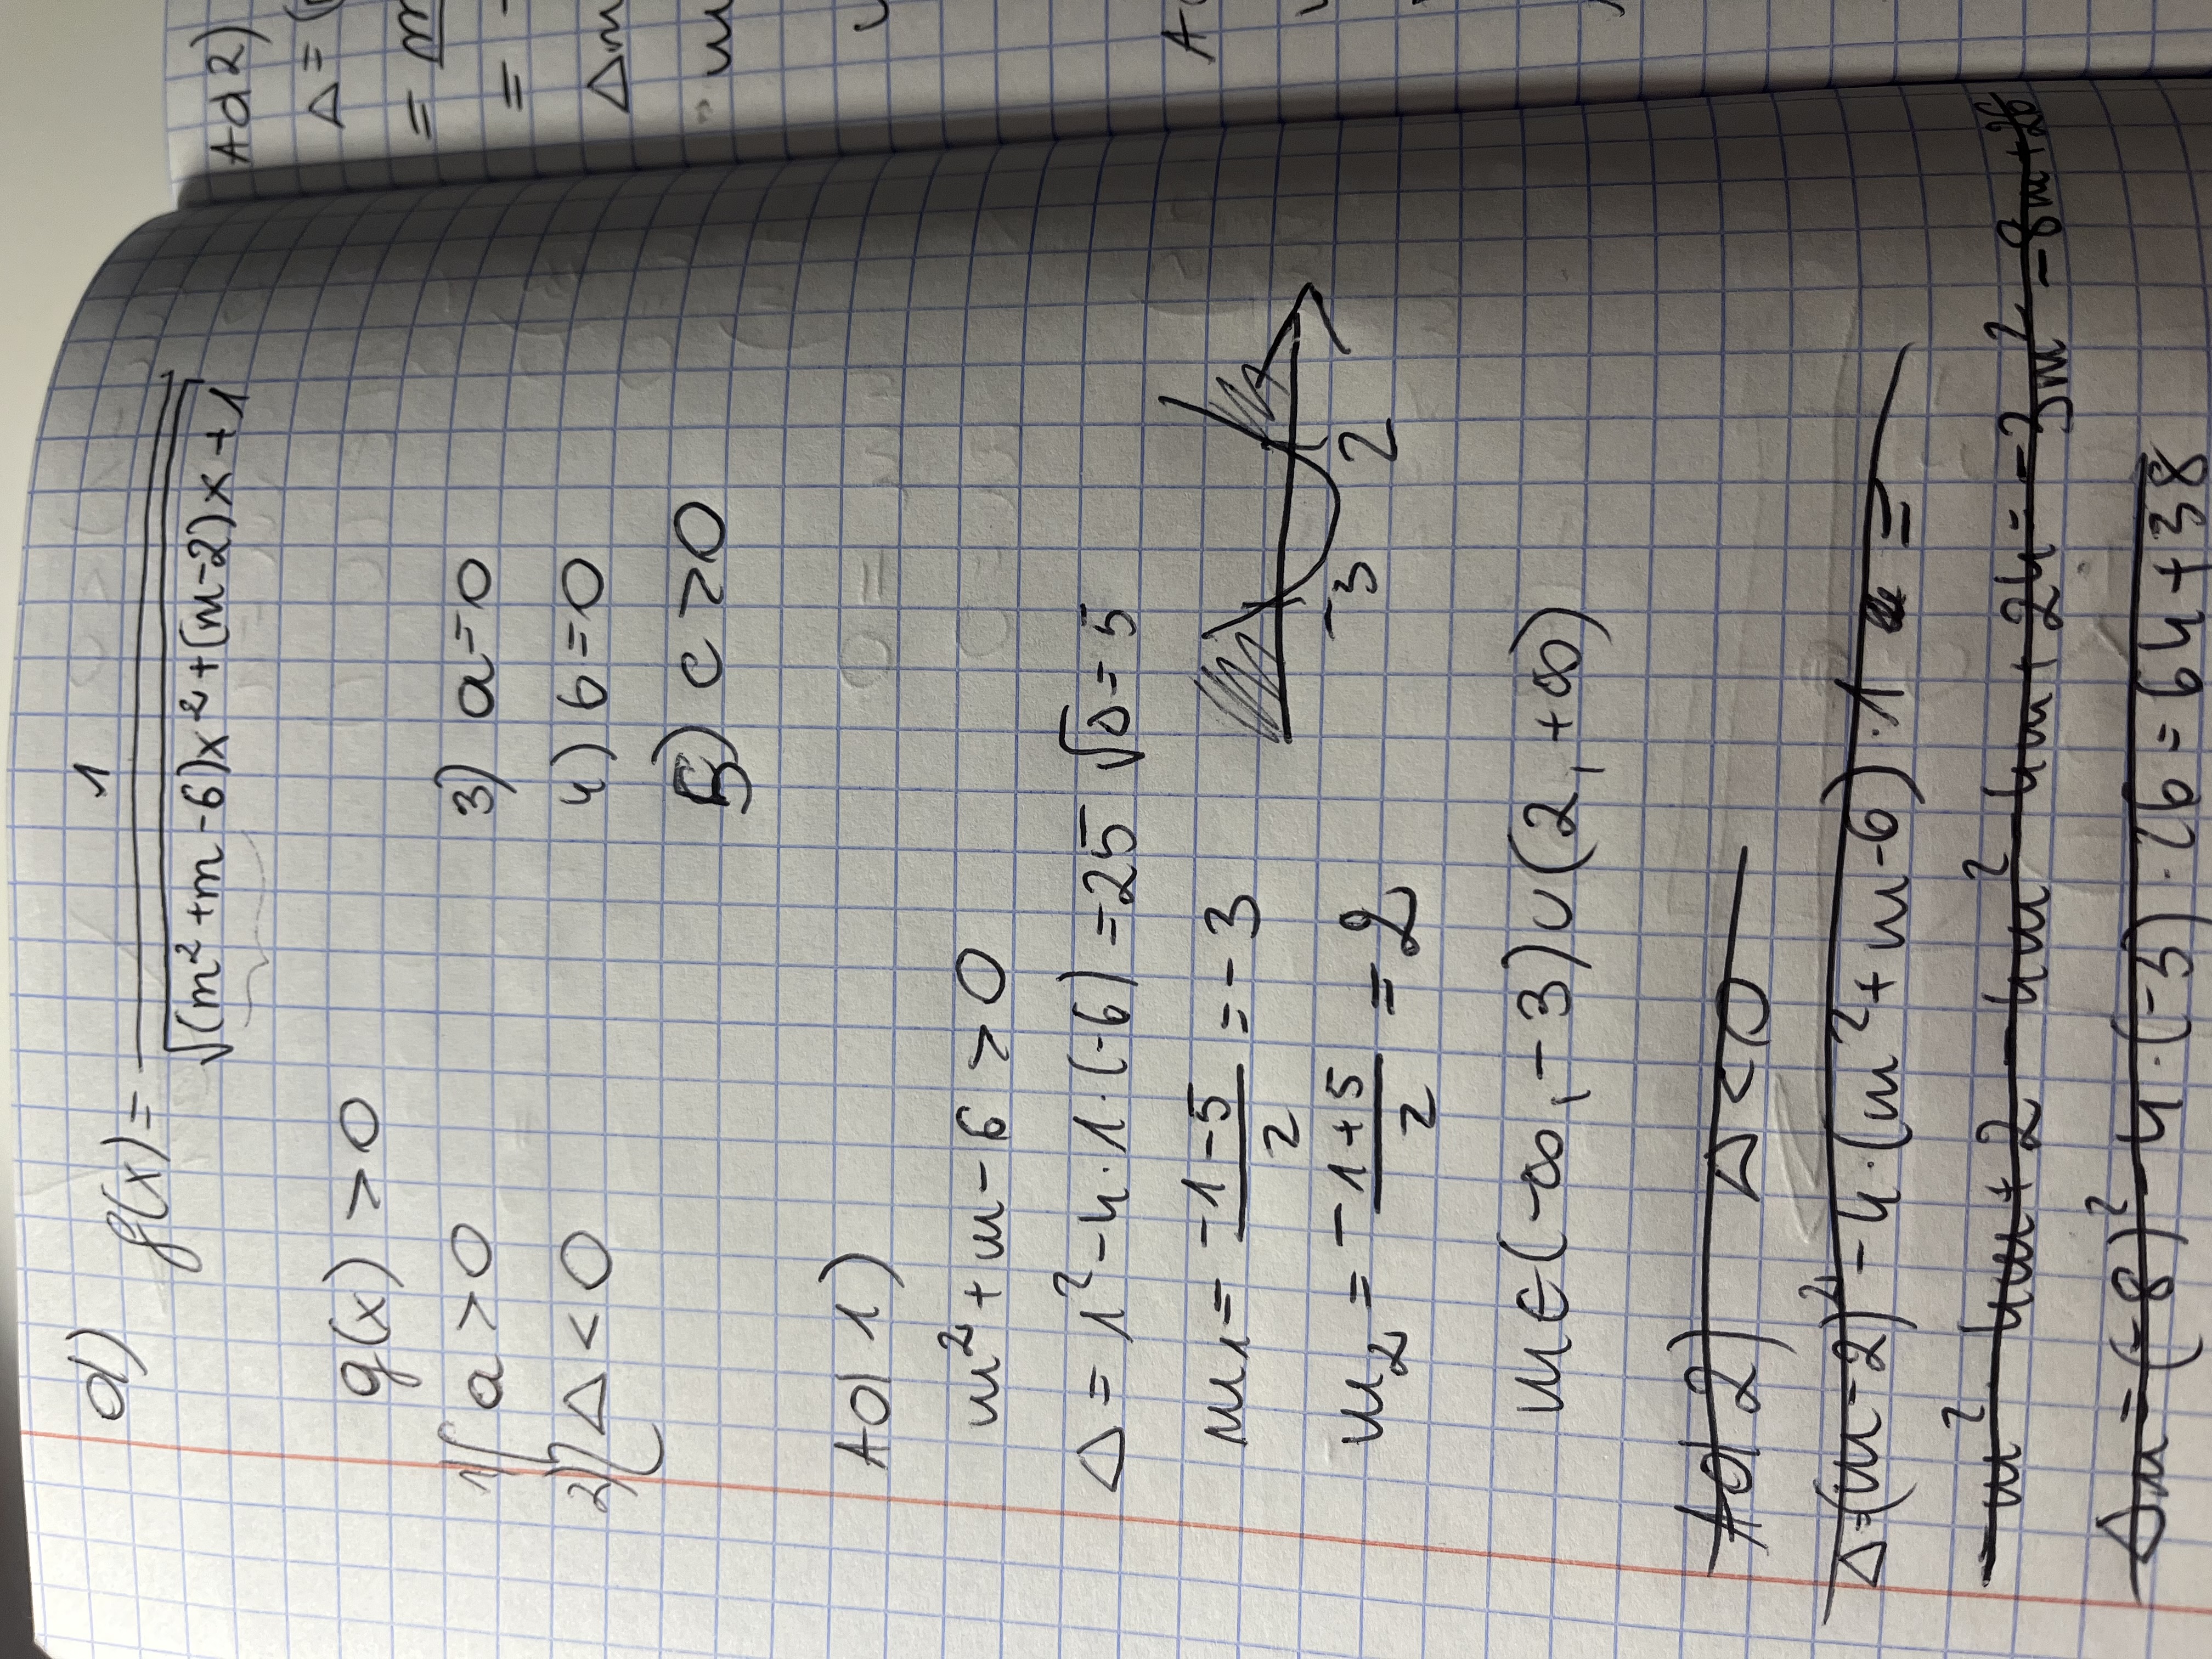 d) f(x) = 1
√(m²+m-6)x²+(m-2)x+1
g(x) > 0
1) a > 0 3) a = 0
2) Δ < 0 4) b = 0
5) c > 0
Ad 1)
m² + m - 6 > 0
Δ = 1² - 4·1·(-6) = 25 √Δ = 5
m1 = -1-5/2 = -3
m2 = -1+5/2 = 2
-3 2
m ∈ (-∞, -3) ∪ (2, +∞)
Ad 2) Δ < 0
Δ = (m-2)² - 4·(m²+m-6)·1 =
m² - 4m + 2 - 4m² - 4m + 24 = -3m² - 8m + 26
Δm = (-8)² - 4·(-3)·26 = 64 + 38
Ad 2)
Δ = (
= m
= -
Δm
m